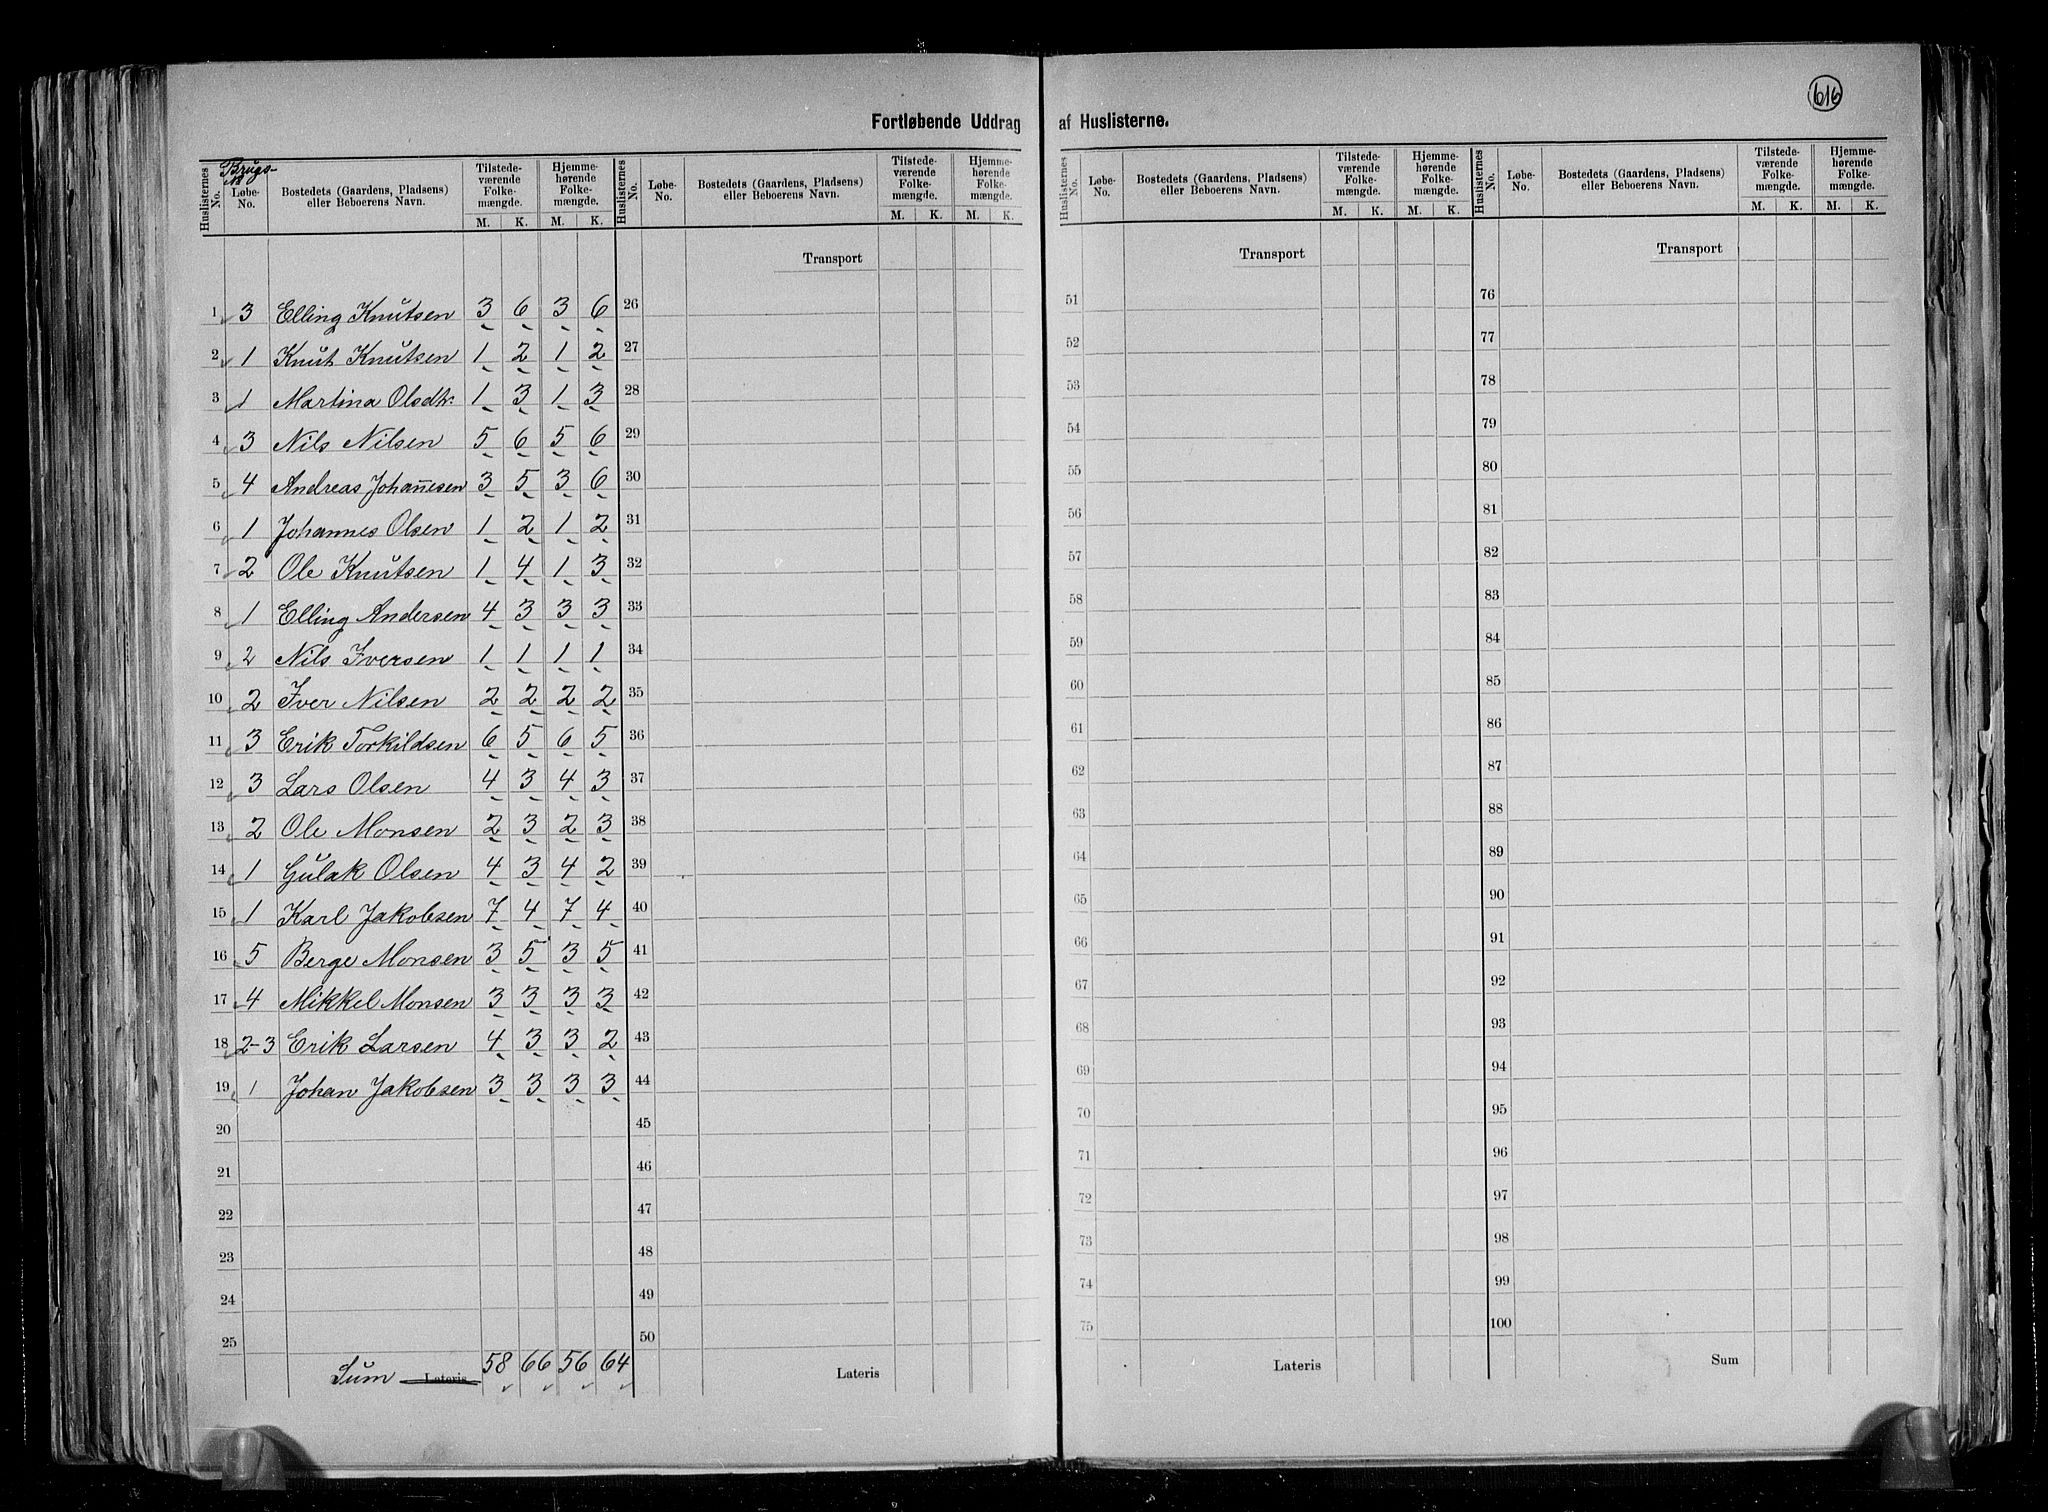 616
Fortløbende Uddrag af Huslisterne.
Huslisternes No. Brugs- No Løbe-No. Bostedets (Gaardens, Pladsens) eller Beboerens Navn. Tilstede-værende Folke-mængde. M. K. Hjemme-hørende Folke-mængde. M. K.
Huslisternes No. Løbe-No. Bostedets (Gaardens, Pladsens) eller Beboerens Navn. Tilstede-værende Folke-mængde. M. K. Hjemme-hørende Folke-mængde. M. K.
Huslisternes No. Løbe-No. Bostedets (Gaardens, Pladsens) eller Beboerens Navn. Tilstede-værende Folke-mængde. M. K. Hjemme-hørende Folke-mængde. M. K.
Huslisternes No. Løbe-No. Bostedets (Gaardens, Pladsens) eller Beboerens Navn. Tilstede-værende Folke-mængde. M. K. Hjemme-hørende Folke-mængde. M. K.
Transport Transport Transport
1 3 Elling Knutsen 3 6 3 6 26 51 76
2 1 Knut Knutsen 1 2 1 2 27 52 77
3 1 Martina Olsdtr: 1 3 1 3 28 53 78
4 3 Nils Nilsen 5 6 5 6 29 54 79
5 4 Andreas Johan̄esen 3 5 3 6 30 55 80
6 1 Johannes Olsen 1 2 1 2 31 56 81
7 2 Ole Knutsen 1 4 1 3 32 57 82
8 1 Elling Andersen 4 3 3 3 33 58 83
9 2 Nils Iversen 1 1 1 1 34 59 84
10 2 Iver Nilsen 2 2 2 2 35 60 85
11 3 Erik Torkildsen 6 5 6 5 36 61 86
12 3 Lars Olsen 4 3 4 3 37 62 87
13 2 Ole Monsen 2 3 2 3 38 63 88
14 1 Gulak Olsen 4 3 4 2 39 64 89
15 1 Karl Jakobsen 7 4 7 4 40 65 90
16 5 Berge Monsen 3 5 3 5 41 66 91
17 4 Mikkel Monsen 3 3 3 3 42 67 92
18 2-3 Erik Larsen 4 3 3 2 43 68 93
19 1 Johan Jakobsen 3 3 3 3 44 69 94
20 45 70 95
21 46 71 96
22 47 72 97
23 48 73 98
24 49 74 99
25 50 75 100
Sum Lateris 58 66 56 64 Lateris Lateris Sum